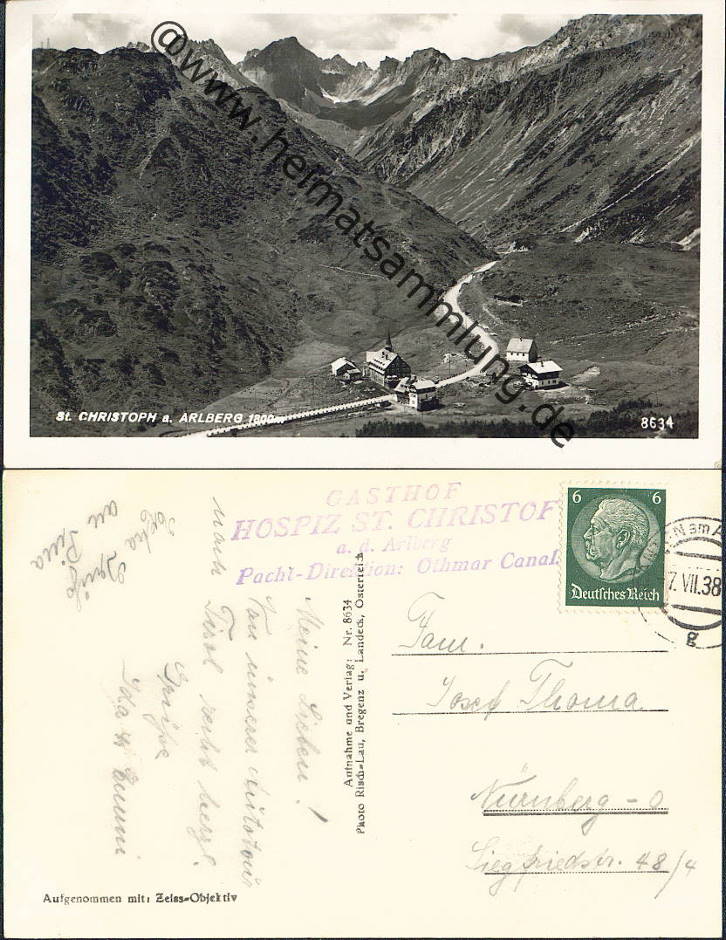 @www.heimatsammlung.de
St. CHRISTOPH a. ARLBERG 1800m
8634
GASTHOF
HOSPIZ ST. CHRISTOF
a. d. Arlberg
Pacht-Direktion: Othmar Canal
6 6
Deutsches Reich
7. VII. 38
g
Meine Lieben!
Von unserer Autotour
nach Tirol recht herzl.
Grüße
Ida u. Emmi
an Rina
Aufnahme und Verlag: Nr. 8634
Photo Risch-Lau, Bregenz u. Landeck, Österreich
Fam.
Josef Thoma
Nürnberg - O
Siegfriedstr. 48/4
Aufgenommen mit: Zeiss-Objektiv